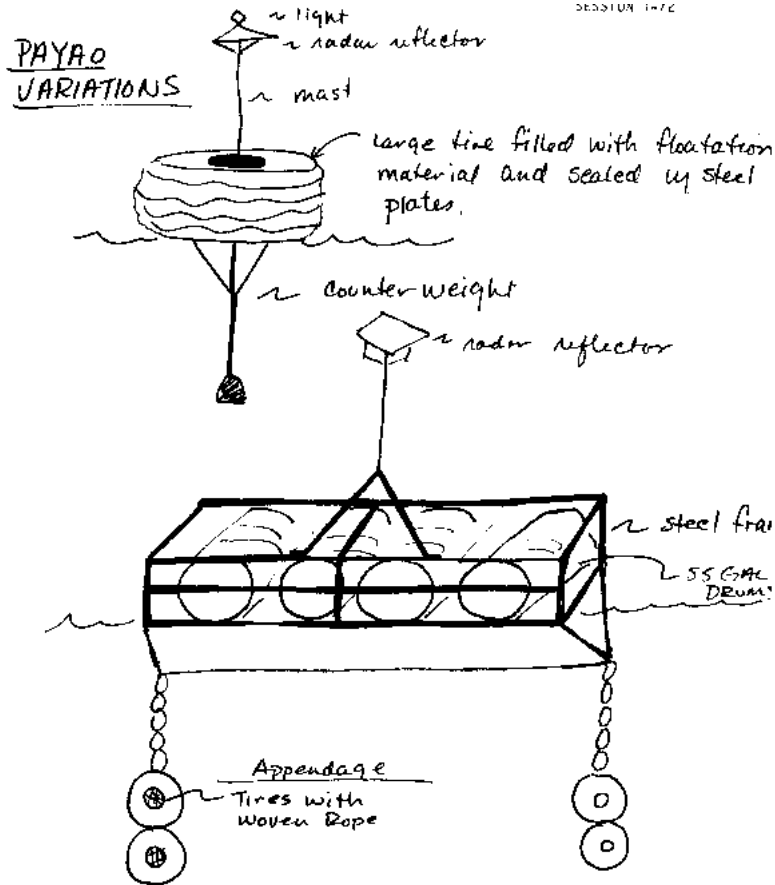 SESSION
PAYAO
VARIATIONS
~ light
~ radar reflector
~ mast
large tire filled with floatation
material and sealed w/ steel
plates.
~ counter weight
~ radar reflector
~ steel fra
55 GAL
DRUM
Appendage
Tires with
woven Rope